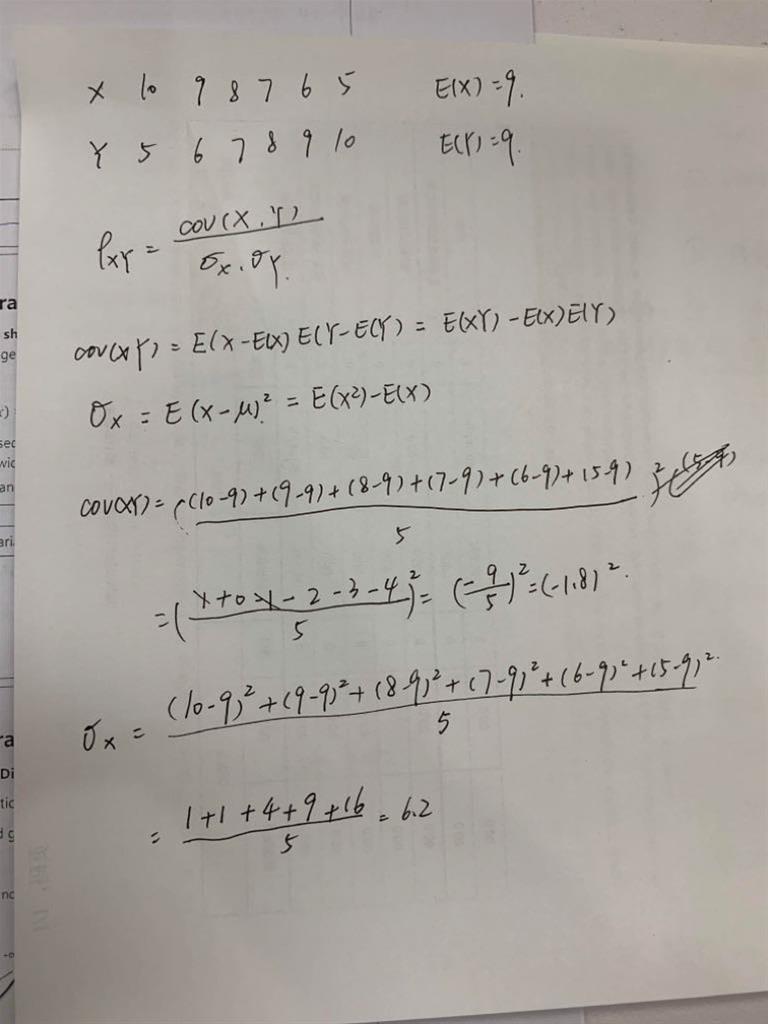 X 10 9 8 7 6 5 E(X)=9.
Y 5 6 7 8 9 10 E(Y)=9.
ρXY = cov(X.Y) / σx.σY.
cov(XY) = E(X-E(X) E(Y-E(Y) = E(XY) -E(X)E(Y)
σx = E(X-μ)² = E(X²)-E(X)
cov(XY) = ((10-9)+(9-9)+(8-9)+(7-9)+(6-9)+(5-9) / 5 )²
=( 1+0-1-2-3-4 / 5 )² = (-9/5)² =(-1.8)².
σx = (10-9)²+(9-9)²+(8-9)²+(7-9)²+(6-9)²+(5-9)². / 5
= 1+1+4+9+16 / 5 = 6.2
ra
sh
ge
sec
wic
an
ari
ra
Di
tic
nc